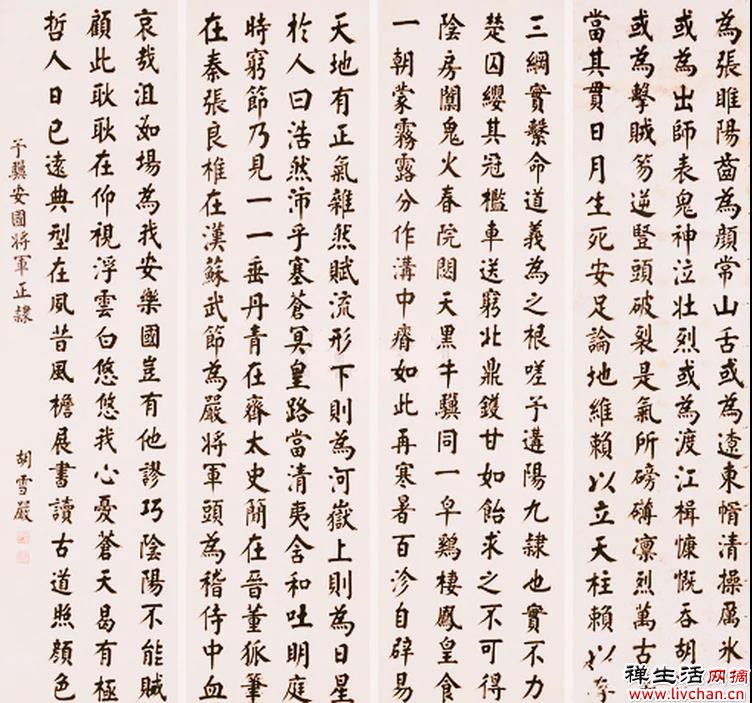 為張睢陽齒為顏常山舌或為遼東帽清操厲氷
或為出師表鬼神泣壯烈或為渡江楫慷慨吞胡
或為擊賊笏逆豎頭破裂是氣所磅礴凛烈萬古
當其貫日月生死安足論地維賴以立天柱賴以
三綱實繫命道義為之根嗟予遘陽九隸也實不力
楚囚纓其冠檻車送窮北鼎鑊甘如飴求之不可得
陰房闃鬼火春院閟天黑牛驥同一皁鷄棲鳳皇食
一朝蒙霧露分作溝中瘠如此再寒暑百沴自辟易
天地有正氣雜然賦流形下則為河嶽上則為日星
於人曰浩然沛乎塞蒼冥皇路當清夷含和吐明庭
時窮節乃見一一垂丹青在齊太史簡在晉董狐筆
在秦張良椎在漢蘇武節為嚴將軍頭為嵇侍中血
哀哉沮洳場為我安樂國豈有他謬巧陰陽不能賊
顧此耿耿在仰視浮雲白悠悠我心憂蒼天曷有極
哲人日已遠典型在夙昔風檐展書讀古道照顏色
予驥安圖將軍正隸
胡雪嚴
禅生活网摘
www.livchan.cn